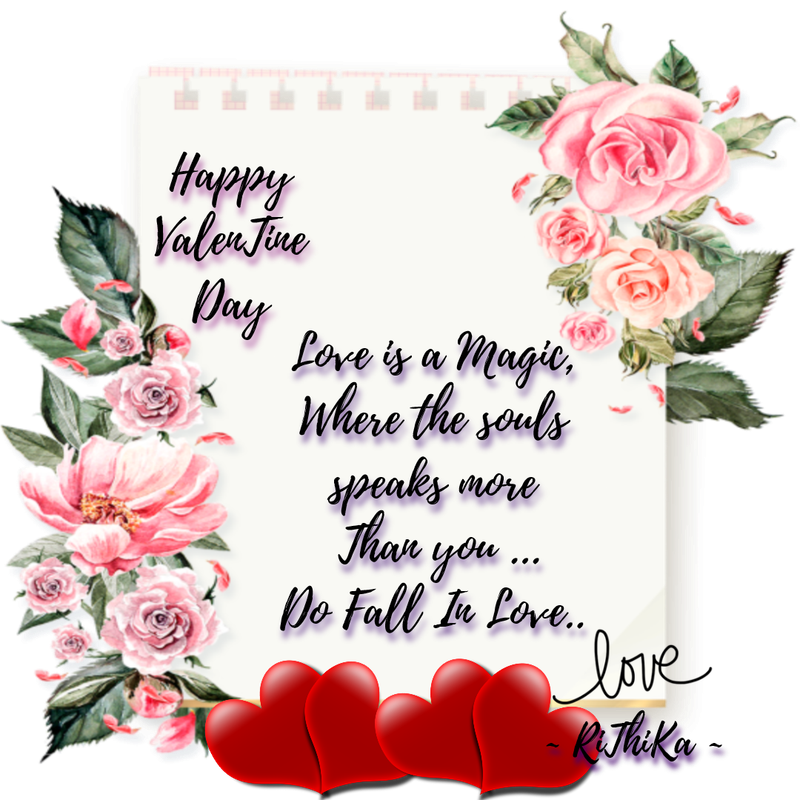 Happy
ValenTine
Day
Love is a Magic,
Where the souls
speaks more
Than you ...
Do Fall In Love..
love
~ RiThiKa ~